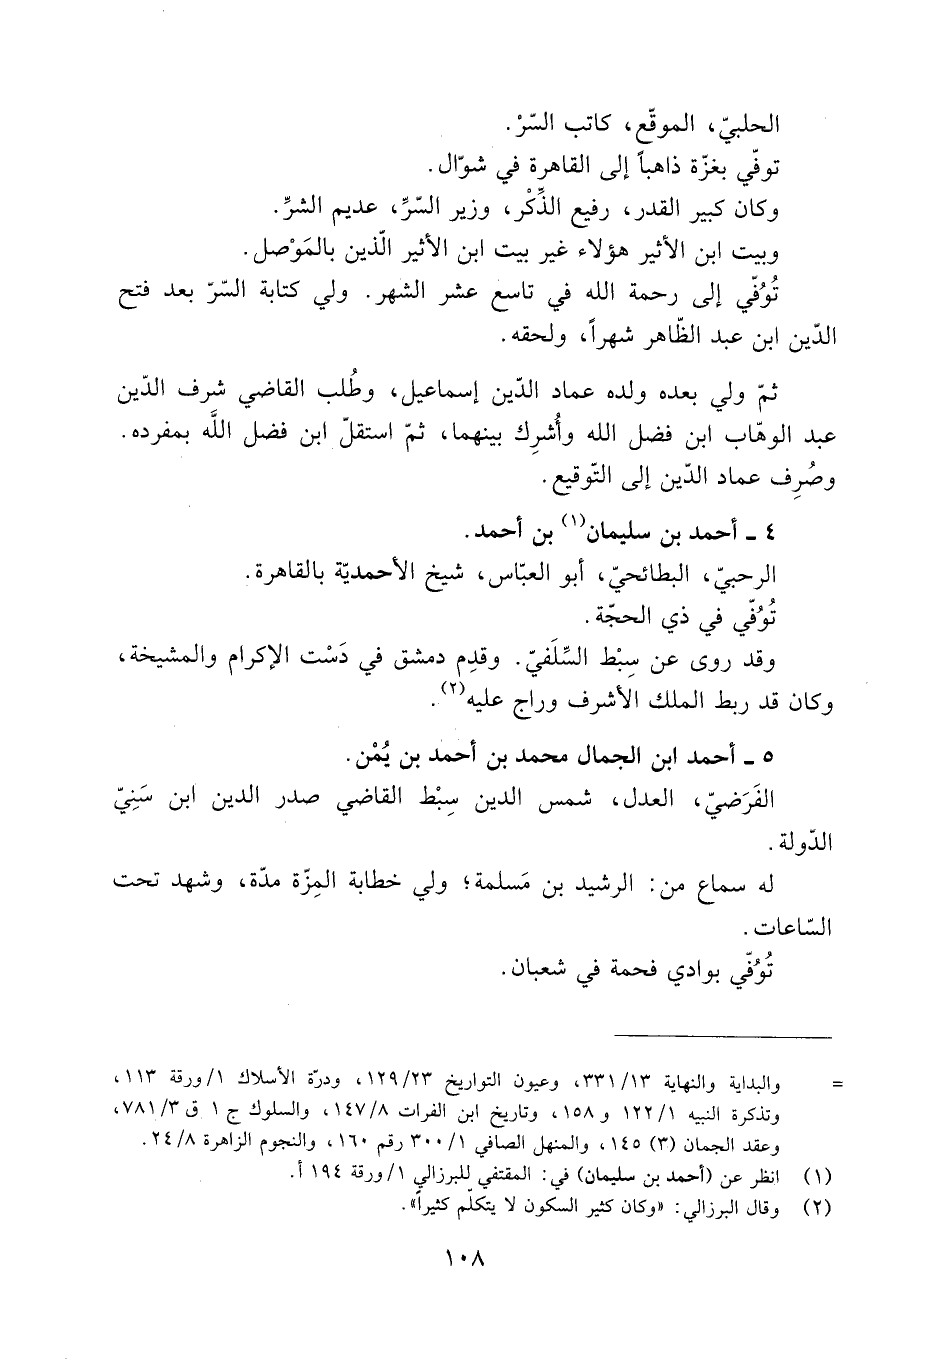 الحلبيّ، الموقّع، كاتب السّرْ.
توفّي بغزّة ذاهباً إلى القاهرة في شوّال.
وكان كبير القدر، رفيع الذِّكْر، وزير السّرِّ، عديم الشرِّ.
وبيت ابن الأثير هؤلاء غير بيت ابن الأثير الّذين بالمَوْصل.
تُوُفّي إلى رحمة الله في تاسع عشر الشهر. ولي كتابة السّرّ بعد فتح
الدّين ابن عبد الظّاهر شهراً، ولحقه.
ثمّ ولي بعده ولده عماد الدّين إسماعيل، وطُلب القاضي شرف الدّين
عبد الوهّاب ابن فضل الله وأُشرِك بينهما، ثمّ استقلّ ابن فضل اللَّه بمفرده.
وصُرِف عماد الدّين إلى التّوقيع.
٤ ـ أحمد بن سليمان(١) بن أحمد.
الرحبيّ، البطائحيّ، أبو العبّاس، شيخ الأحمديّة بالقاهرة.
تُوُفّي في ذي الحجّة.
وقد روى عن سِبْط السِّلَفيّ. وقدِم دمشق في دَسْت الإكرام والمشيخة،
وكان قد ربط الملك الأشرف وراج عليه(٢).
٥ ـ أحمد ابن الجمال محمد بن أحمد بن يُمْن.
الفَرَضيّ، العدل، شمس الدين سِبْط القاضي صدر الدين ابن سَنِيّ
الدّولة.
له سماع من: الرشيد بن مَسلمة؛ ولي خطابة المِزّة مدّة، وشهد تحت
السّاعات.
تُوُفّي بوادي فحمة في شعبان.
= والبداية والنهاية ٣٣١/١٣، وعيون التواريخ ١٢٩/٢٣، ودرّة الأسلاك ١/ورقة ١١٣،
وتذكرة النبيه ١٢٢/١ و ١٥٨، وتاريخ ابن الفرات ١٤٧/٨، والسلوك ج ١ ق ٧٨١/٣،
وعقد الجمان (٣) ١٤٥، والمنهل الصافي ٣٠٠/١ رقم ١٦٠، والنجوم الزاهرة ٢٤/٨.
(١) انظر عن (أحمد بن سليمان) في: المقتفي للبرزالي ١/ورقة ١٩٤ أ.
(٢) وقال البرزالي: «وكان كثير السكون لا يتكلّم كثيراً».
١٠٨